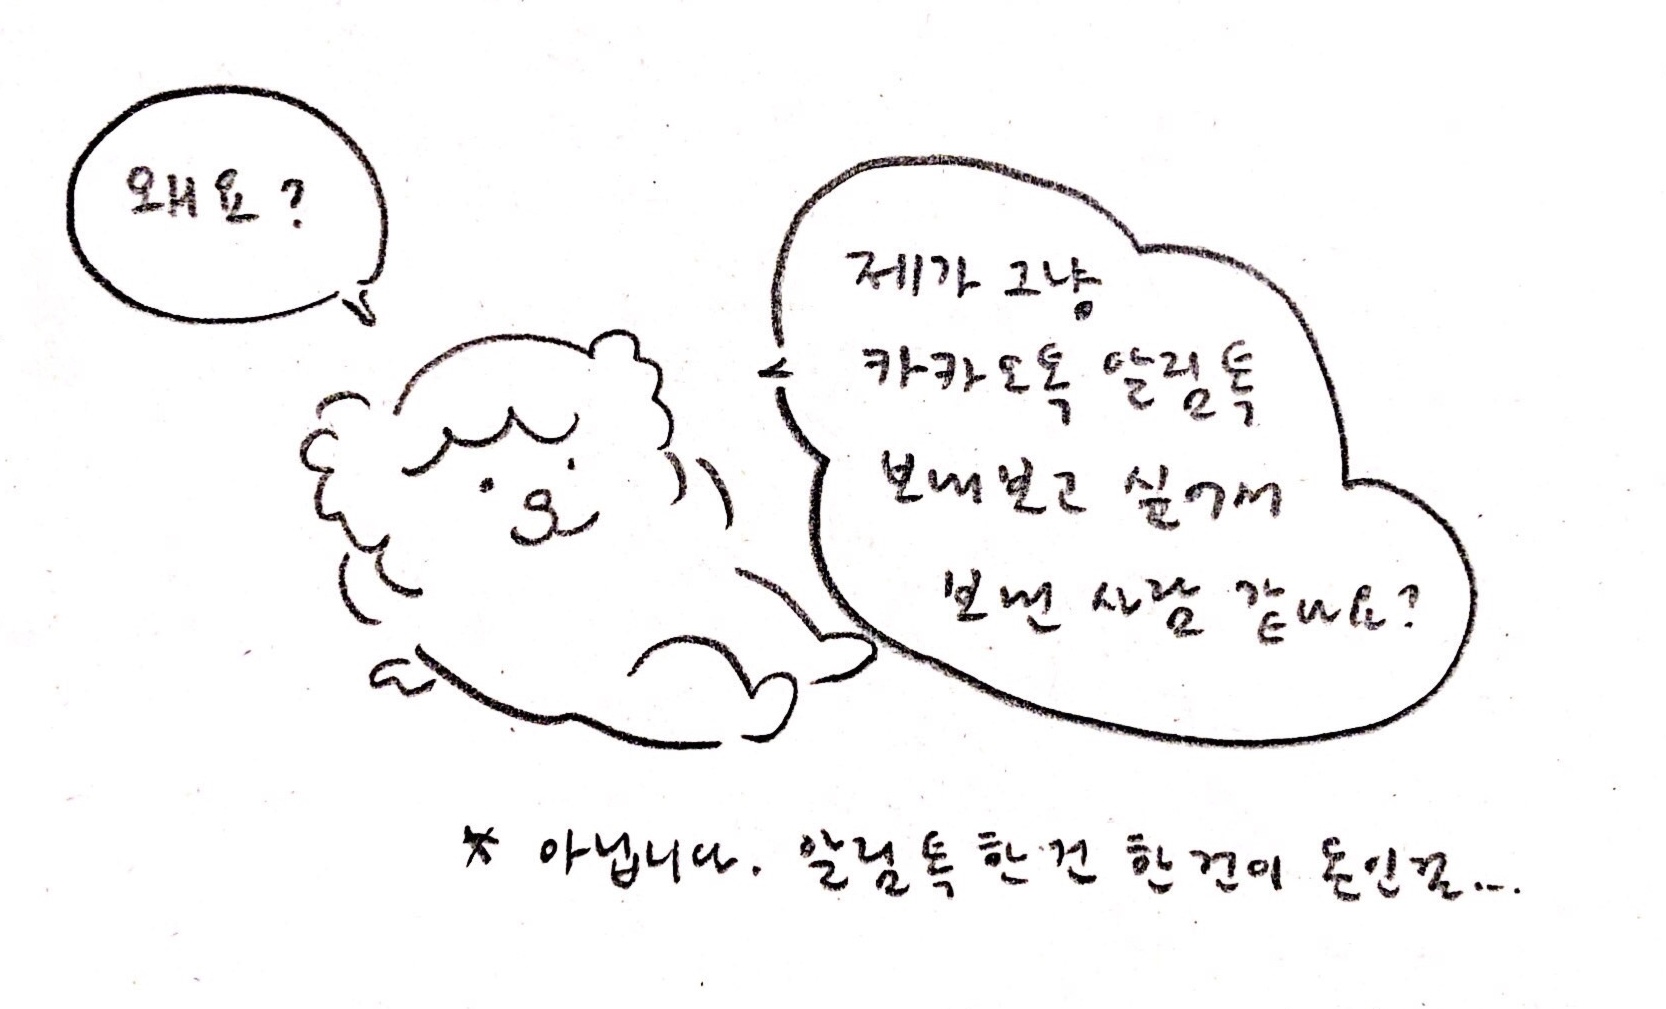 왜요?
제가 그냥
카카오톡 알림톡
보내보고 싶어서
보낸 사람 같나요?
* 아닙니다. 알림톡 한 건 한 건이 돈인걸...